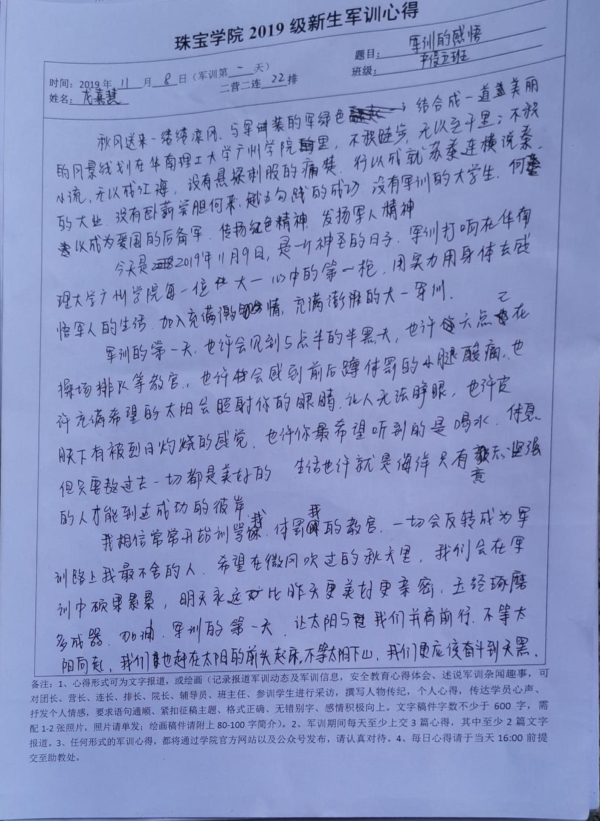 珠宝学院 2019 级新生军训心得
题目： 军训的感悟
时间：2019 年 11 月 8 日（军训第一天）
班级：
姓名： 二营二连 22 排
秋风送来一绺绺凉风，与军训装的军绿色 结合成一道美丽
的风景线刻在华南理工大学广州学院里，不积跬步，无以至千里；不积
小流，无以成江海，没有悬梁刺股的痛楚，何以成就苏秦连横说秦
的大业，没有卧薪尝胆何来越王勾践的成功 没有军训的大学生，何
以成为爱国的后备军，传扬红色精神，发扬军人精神
今天是2019年11月9日，是一个神圣的日子，军训打响在华南
理大学广州学院每一位大一心中的第一枪，用实力用身体去感
悟军人的生活 加入充满激情，充满澎湃的大一军训．
军训的第一天．也许会见到5点半的半黑天，也许六点已在
操场排队等教官，也许会感到前后蹲体罚的小腿酸痛，也
许充满希望的太阳会照射你的眼睛，让人无法睁眼，也许皮
肤下有被烈日灼烧的感觉，也许你最希望听到的是喝水、休息
但只要熬过去一切都是美好的 生活也许就是海洋只有意志坚强
的人才能到达成功的彼岸
我相信常常开始训骂我、体罚我的教官，一切会反转成为军
训路上我最不舍的人．希望在微风吹过的秋天里，我们会在军
训中硕果累累，明天永远比昨天更美好更亲密，玉经琢磨
多成器 加油，军训的第一天，让太阳与我们并肩前行，不等太
阳同起，我们也赶在太阳的前头起床，不等太阳下山，我们更应该奋斗到天黑．
备注：1、心得形式可为文字报道，或绘画（记录报道军训动态及军训信息，安全教育心得体会、述说军训杂闻趣事，可
对团长、营长、连长、排长、院长、辅导员、班主任、参训学生进行采访，撰写人物传纪，个人心得，传达学员心声、
抒发个人情感，要求语句通顺、紧扣征稿主题、格式正确、无错别字、感情积极向上。文字稿件字数不少于 600 字，需
配 1-2 张照片，照片请单发；绘画稿件请附上 80-100 字简介）。2、军训期间每天至少上交 3 篇心得，其中至少 2 篇文字
报道。3、任何形式的军训心得，都将通过学院官方网站以及公众号发布，请认真对待。4、每日心得请于当天 16:00 前提
交至助教处。